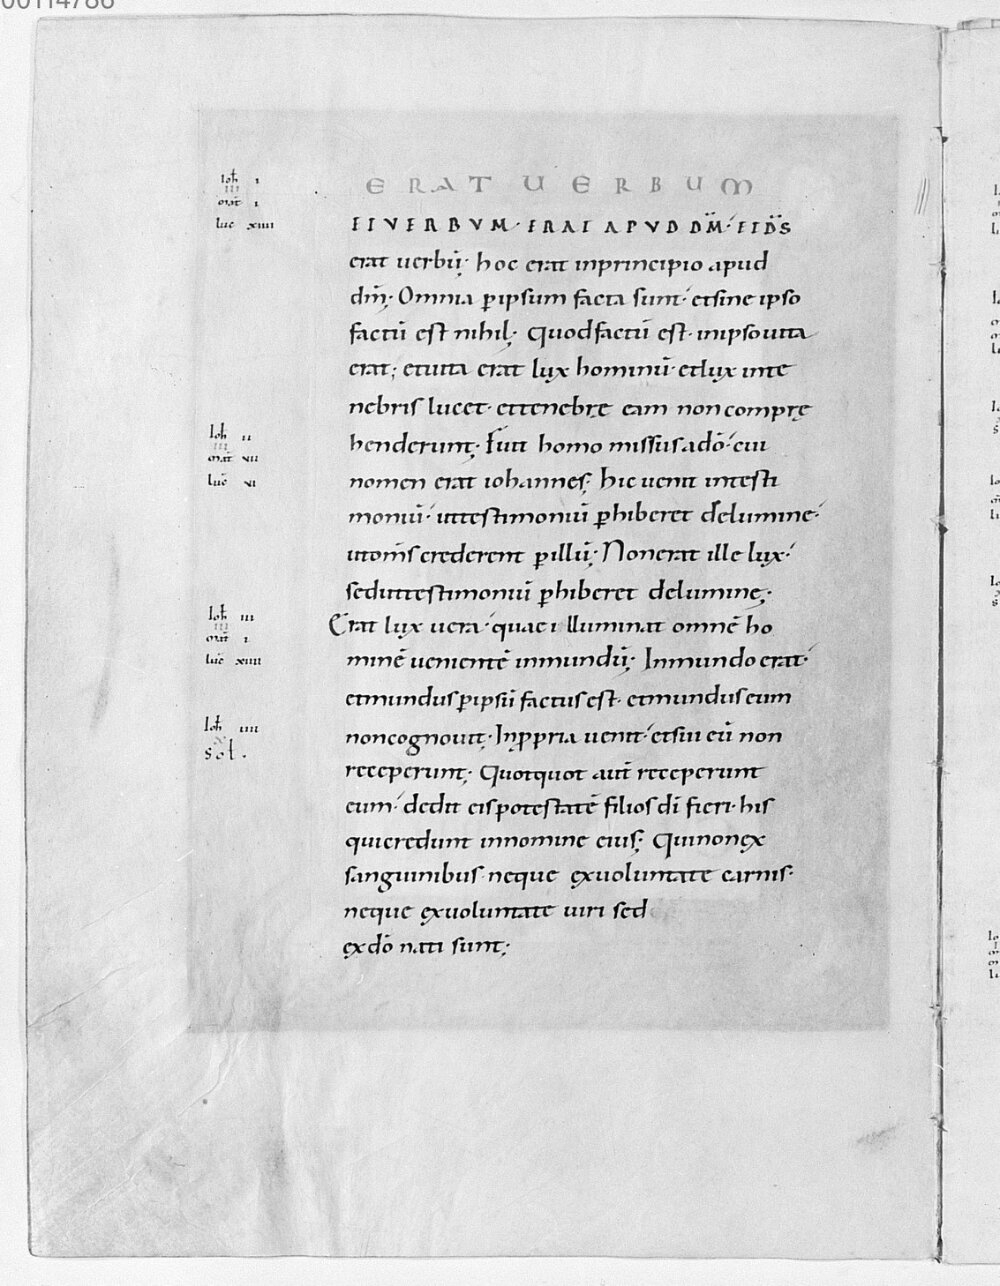 00114786
ERAT UERBUM
ET VERBVM· ERAT APVD DM̄·́ ET DS̄
erat uerbū· hoc erat inprincipio apud
dm̄; Omnia ꝑipsum facta sunt·́ etsine ipso
factū est nihil; Quodfactū est· inipsouita
erat; etuita erat lux hominū·́ etlux inte
nebris lucet· ettenebrę eam noncomprę
henderunt; Fuit homo missus adō·́ cui
nomen erat iohannes; hic uenit intesti
moniū·́ uttestimoniū ꝑhiberet delumine·́
utom̄s crederent ꝑillū; Nonerat ille lux·́
seduttestimoniū ꝑhiberet delumine;
Erat lux uera·́ quae illuminat omnē ho
minē uenientē inmundū; Inmundo erat·́
etmundus ꝑipsū factus est· etmundus eum
noncognouit; Inꝓpria uenit·́ etsui eū non
receperunt; Quotquot aut̄ receperunt
eum·́ dedit eis potestatē filios dī fieri· his
quicredunt innomine eius; Quinonex
sanguinibus· neque exuoluntate carnis·
neque exuoluntate uiri sed
exdō nati sunt;
Ioh̄ ı
ııı
mat̄ ı
luc̄ xıııı
Ioh̄ ıı
ııı
mat̄ vıı
luc̄ vı
Ioh̄ ııı
ııı
mat̄ ı
luc̄ xıııı
Ioh̄ ıııı
x
sol.